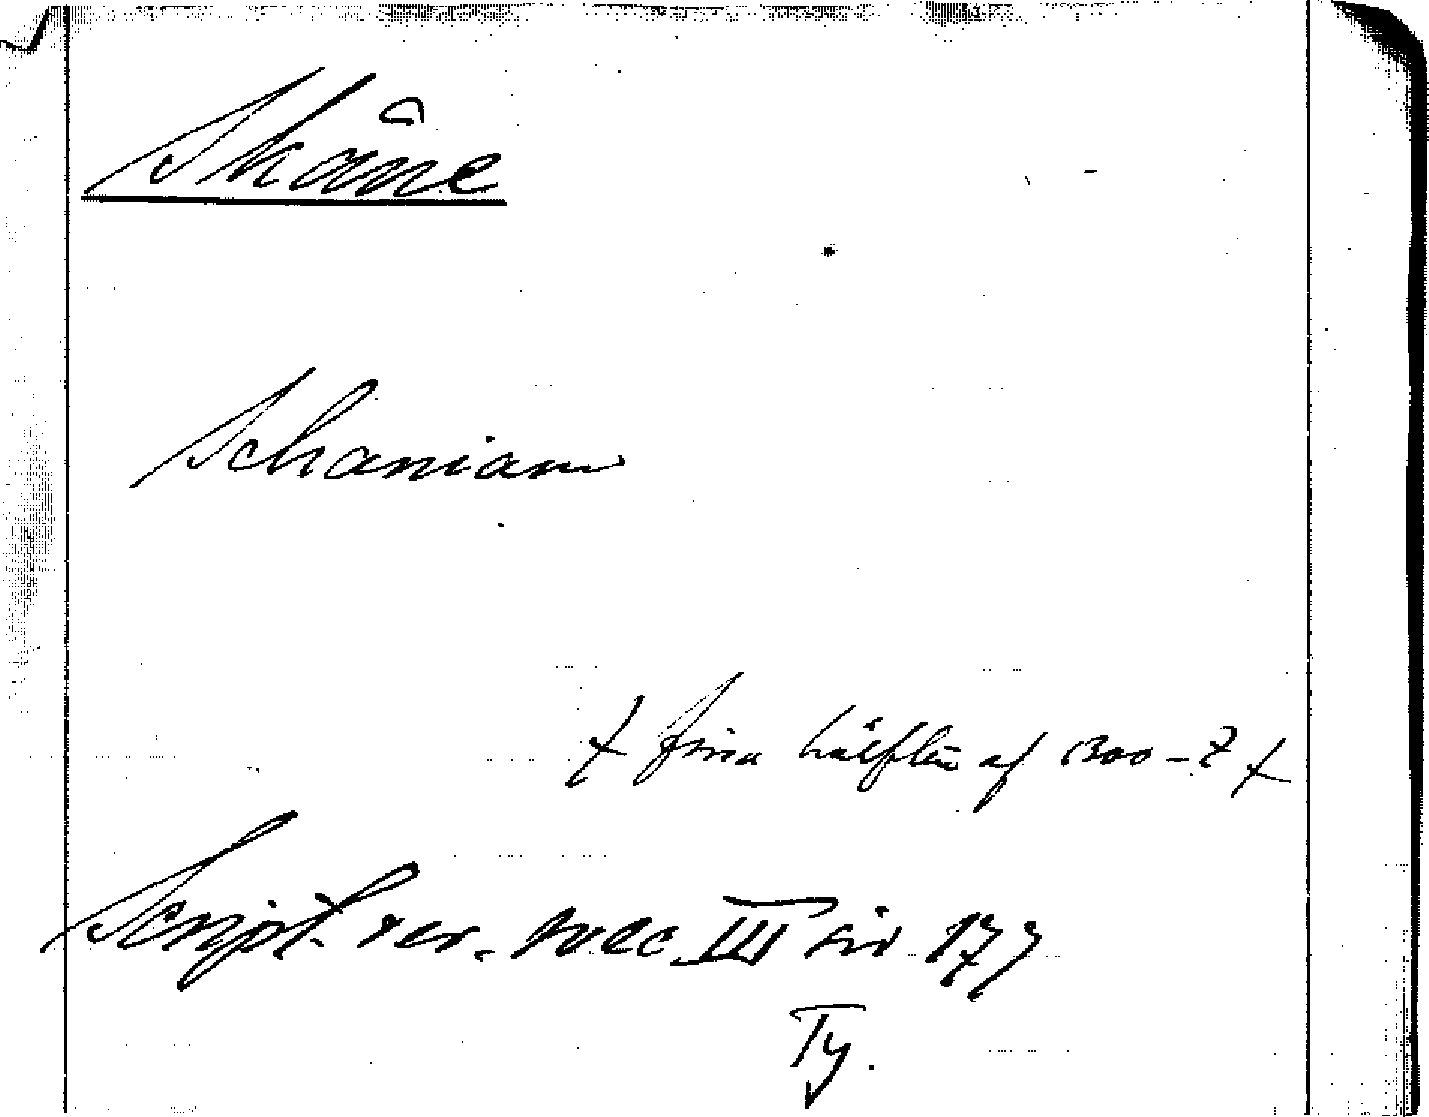 Skåne
Schaniam
förra hälften af 1300-t
Script. rer. svec. III sid 177
Ty.